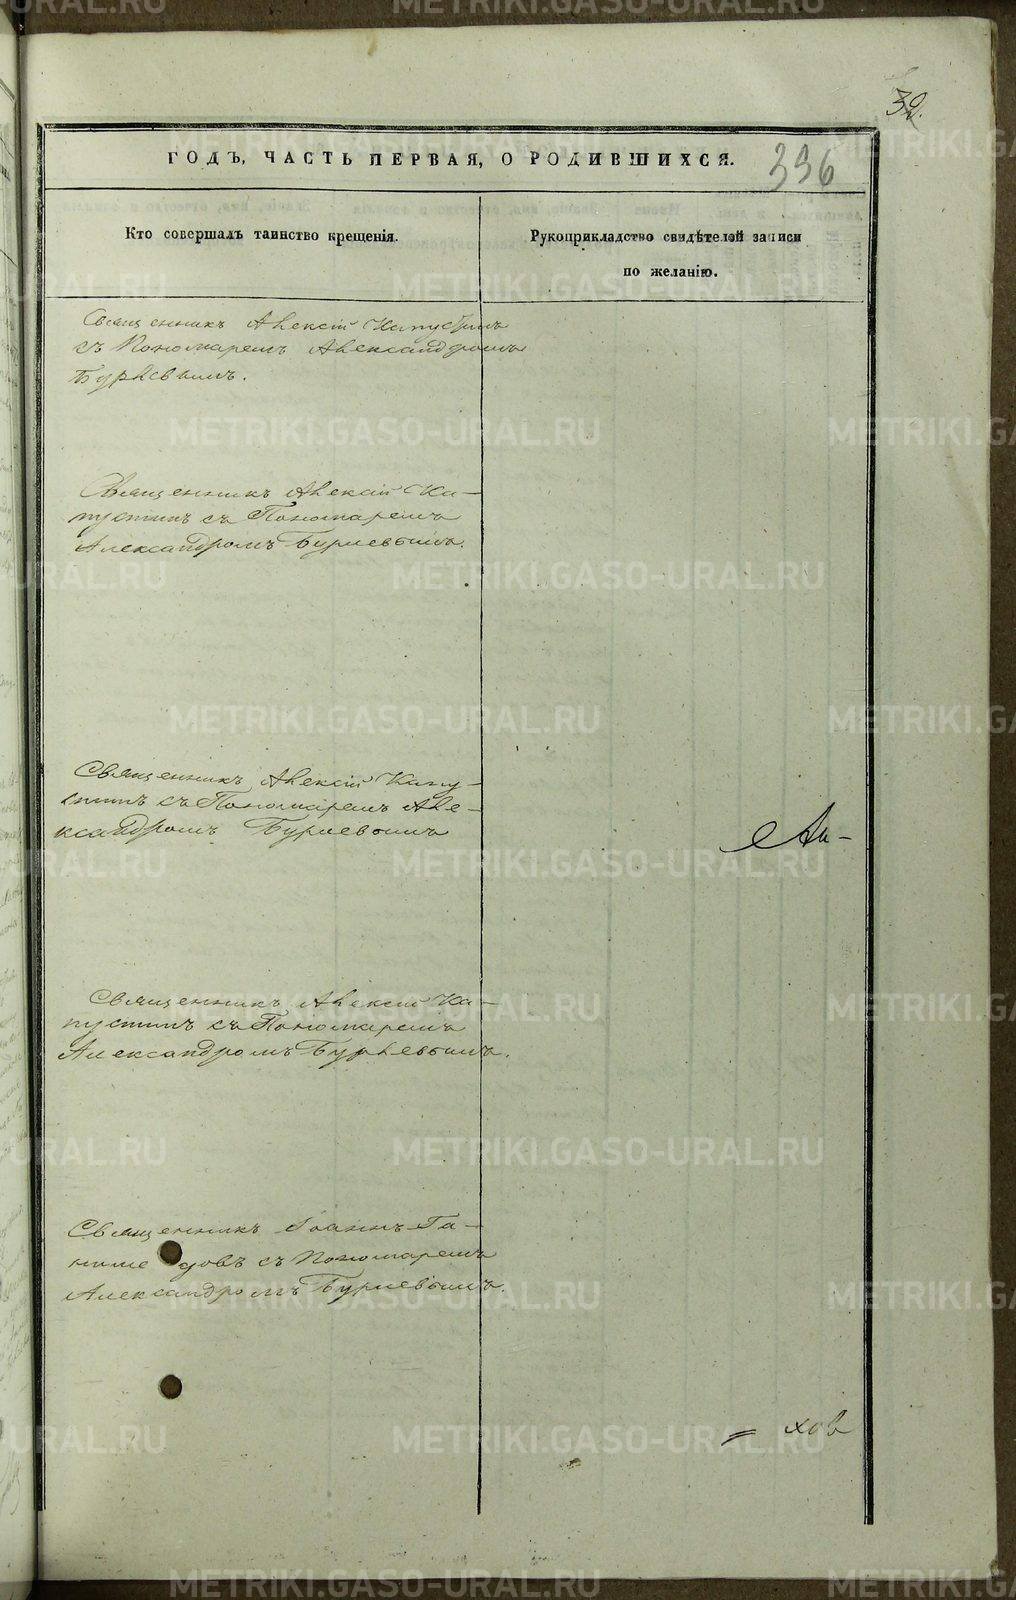 32.
ГОДЪ, ЧАСТЬ ПЕРВАЯ, О РОДИВШИХСЯ.
336
Кто совершалъ таинство крещенія.
Рукоприкладство свидѣтелей записи
по желанію.
Священникъ Алексій Капустинъ
съ Пономаремъ Александромъ
Бурлевымъ.
Священникъ Алексій Ка-
пустинъ съ Пономаремъ
Александромъ Бурлевымъ.
Священникъ Алексій Капу-
стинъ съ Пономаремъ Але-
ксандромъ Бурлевымъ
Священникъ Алексій Ка-
пустинъ съ Пономаремъ
Александромъ Бурлевымъ.
Священникъ Іоаннъ
съ Пономаремъ
Александромъ Бурлевымъ.
= хов
METRIKI.GASO-URAL.RU